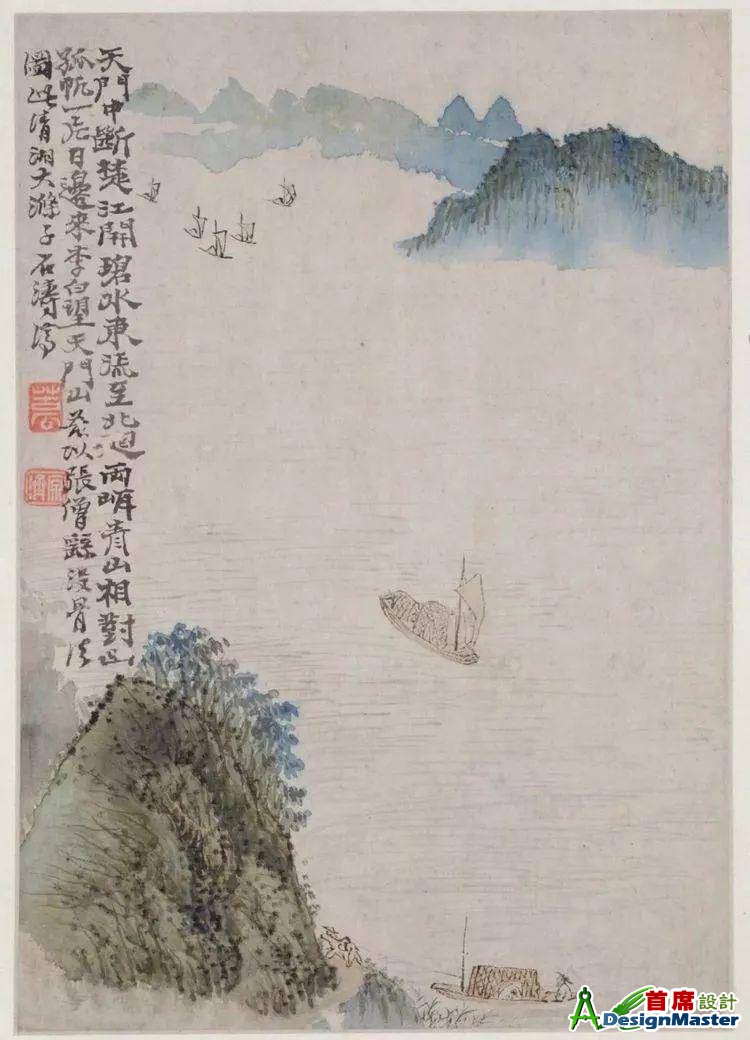 天門中斷楚江開碧水東流至北迴兩岸青山相對出
孤帆一片日邊來李白望天門山茲以張僧繇沒骨法
圖此清湘大滌子石濤濟
首席設計
ADesignMaster